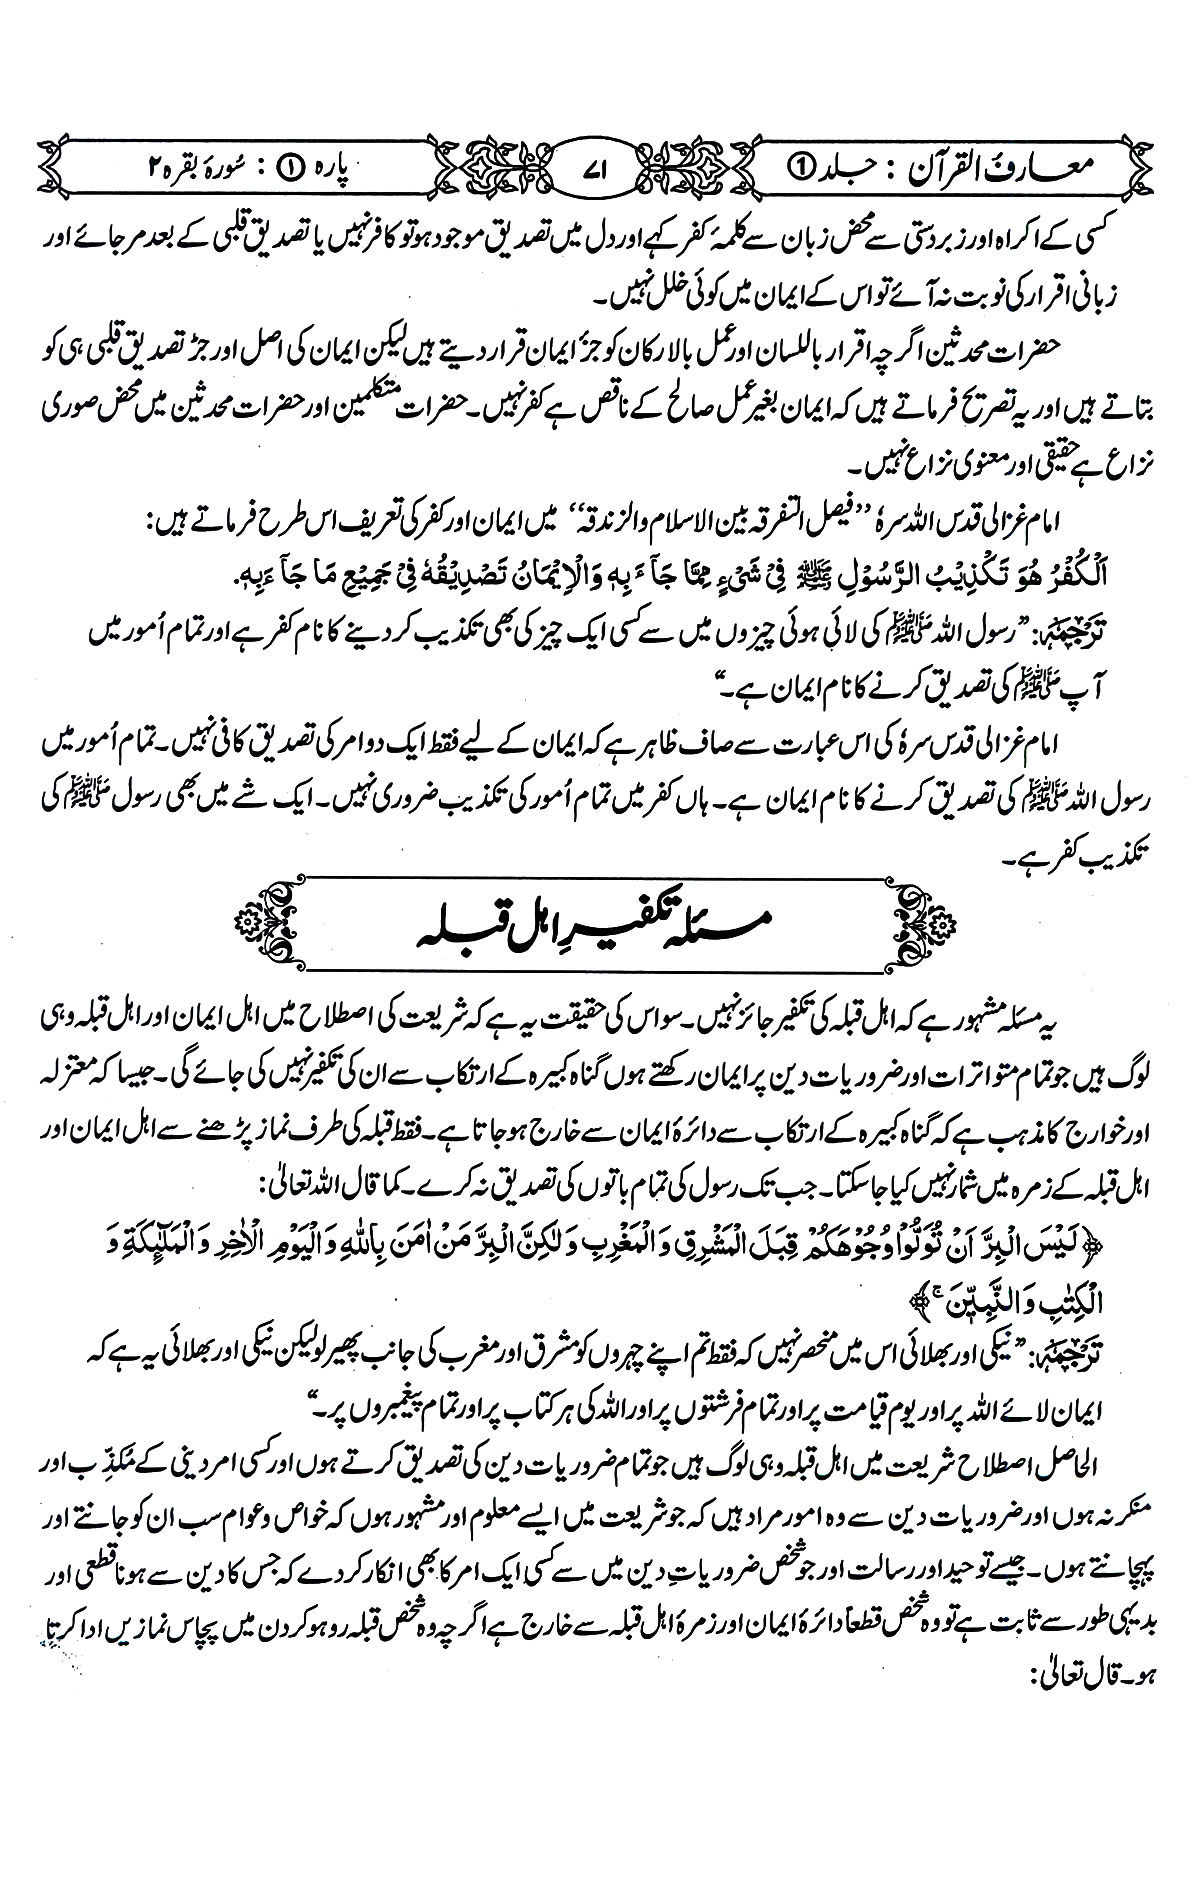 معارف القرآن : جلد ۱
۷۱
پارہ ۱ : سُورۂ بقرہ ۲
کسی کے اکراہ اور زبردستی سے محض زبان سے کلمۂ کفر کہے اور دل میں تصدیق موجود ہو تو کافر نہیں یا تصدیق قلبی کے بعد مر جائے اور
زبانی اقرار کی نوبت نہ آئے تو اس کے ایمان میں کوئی خلل نہیں۔
حضرات محدثین اگرچہ اقرار باللسان اور عمل بالارکان کو جزٔ ایمان قرار دیتے ہیں لیکن ایمان کی اصل اور جڑ تصدیق قلبی ہی کو
بتاتے ہیں اور یہ تصریح فرماتے ہیں کہ ایمان بغیر عمل صالح کے ناقص ہے کفر نہیں۔ حضرات متکلمین اور حضرات محدثین میں محض صوری
نزاع ہے حقیقی اور معنوی نزاع نہیں۔
امام غزالی قدس اللہ سرہٗ ’’فیصل التفرقہ بین الاسلام والزندقہ‘‘ میں ایمان اور کفر کی تعریف اس طرح فرماتے ہیں:
اَلْکُفْرُ هُوَ تَکْذِیْبُ الرَّسُوْلِ ﷺ فِیْ شَیْءٍ مِمَّا جَآءَ بِهٖ وَالْاِیْمَانُ تَصْدِیْقُهٗ فِیْ جَمِیْعِ مَا جَآءَ بِهٖ.
تَرجَمَہ: ”رسول اللہ ﷺ کی لائی ہوئی چیزوں میں سے کسی ایک چیز کی بھی تکذیب کر دینے کا نام کفر ہے اور تمام اُمور میں
آپ ﷺ کی تصدیق کرنے کا نام ایمان ہے۔“
امام غزالی قدس سرہٗ کی اس عبارت سے صاف ظاہر ہے کہ ایمان کے لیے فقط ایک دو امر کی تصدیق کافی نہیں۔ تمام اُمور میں
رسول اللہ ﷺ کی تصدیق کرنے کا نام ایمان ہے۔ ہاں کفر میں تمام اُمور کی تکذیب ضروری نہیں۔ ایک شے میں بھی رسول ﷺ کی
تکذیب کفر ہے۔
مسئلہ تکفیرِ اہل قبلہ
یہ مسئلہ مشہور ہے کہ اہل قبلہ کی تکفیر جائز نہیں۔ سو اس کی حقیقت یہ ہے کہ شریعت کی اصطلاح میں اہل ایمان اور اہل قبلہ وہی
لوگ ہیں جو تمام متواترات اور ضروریات دین پر ایمان رکھتے ہوں گناہ کبیرہ کے ارتکاب سے ان کی تکفیر نہیں کی جائے گی۔ جیسا کہ معتزلہ
اور خوارج کا مذہب ہے کہ گناہ کبیرہ کے ارتکاب سے دائرۂ ایمان سے خارج ہو جاتا ہے۔ فقط قبلہ کی طرف نماز پڑھنے سے اہل ایمان اور
اہل قبلہ کے زمرہ میں شمار نہیں کیا جا سکتا۔ جب تک رسول کی تمام باتوں کی تصدیق نہ کرے۔ کما قال اللہ تعالیٰ:
﴿لَیْسَ الْبِرَّ اَنْ تُوَلُّوْا وُجُوْهَکُمْ قِبَلَ الْمَشْرِقِ وَالْمَغْرِبِ وَلٰکِنَّ الْبِرَّ مَنْ اٰمَنَ بِاللّٰهِ وَالْیَوْمِ الْاٰخِرِ وَالْمَلٰٓئِکَةِ وَ
الْکِتٰبِ وَالنَّبِیّٖنَ ۚ﴾
تَرجَمَہ: ”نیکی اور بھلائی اس میں منحصر نہیں کہ فقط تم اپنے چہروں کو مشرق اور مغرب کی جانب پھیر لو لیکن نیکی اور بھلائی یہ ہے کہ
ایمان لائے اللہ پر اور یوم قیامت پر اور تمام فرشتوں پر اور اللہ کی ہر کتاب پر اور تمام پیغمبروں پر۔“
الحاصل اصطلاح شریعت میں اہل قبلہ وہی لوگ ہیں جو تمام ضروریات دین کی تصدیق کرتے ہوں اور کسی امر دینی کے مُکذِّب اور
منکر نہ ہوں اور ضروریات دین سے وہ امور مراد ہیں کہ جو شریعت میں ایسے معلوم اور مشہور ہوں کہ خواص و عوام سب ان کو جانتے اور
پہچانتے ہوں۔ جیسے توحید اور رسالت اور جو شخص ضروریاتِ دین میں سے کسی ایک امر کا بھی انکار کر دے کہ جس کا دین سے ہونا قطعی اور
بدیہی طور سے ثابت ہے تو وہ شخص قطعاً دائرۂ ایمان اور زمرۂ اہل قبلہ سے خارج ہے اگرچہ وہ شخص قبلہ رو ہو کر دن میں پچاس نمازیں ادا کرتا
ہو۔ قال تعالیٰ: